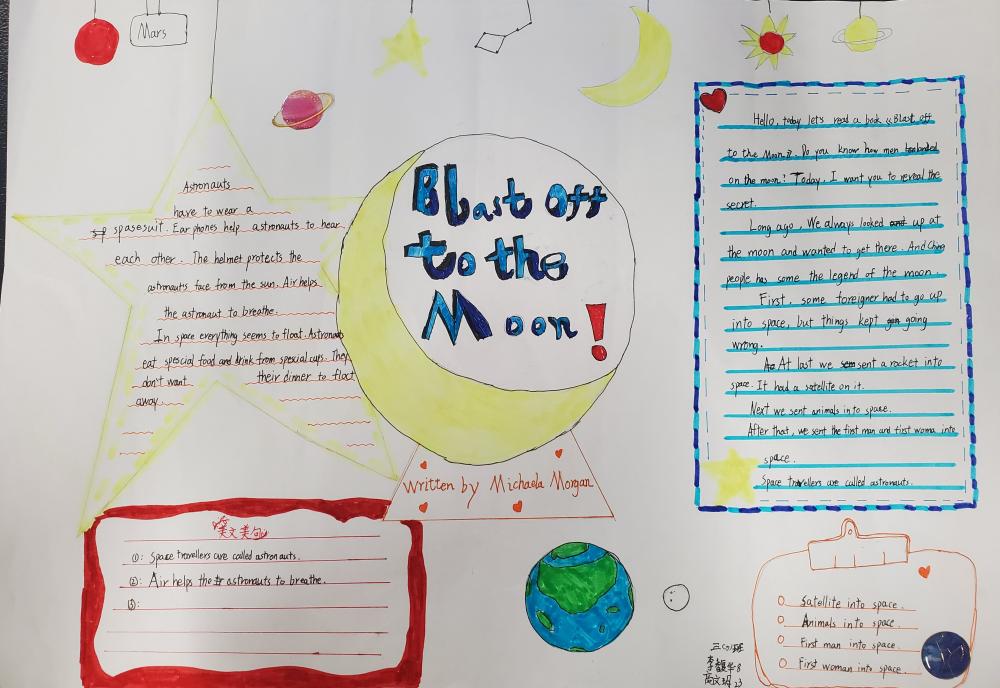 Mars
Blast Off
to the
Moon!
Written by Michaela Morgan
Astronauts
have to wear a
spasesuit. Ear phones help astronauts to hear
each other. The helmet protects the
astronaut's face from the sun. Air helps
the astronaut to breathe.
In space everything seems to float. Astronauts
eat spescial food and drink from special cups. They
don't want their dinner to float
away.
美文美句
①: Space travellers are called astronauts.
②: Air helps the astronauts to breathe.
③:
Hello, today let's read a book 《Blast off
to the Moon》. Do you know how men landed
on the moon? Today, I want you to reveal the
secret.
Long ago, We always looked up at
the moon and wanted to get there. And
people has some the legend of the moon.
First, some foreigner had to go up
into space, but things kept going
wrong.
At last we sent a rocket into
space. It had a satellite on it.
Next we sent animals into space.
After that, we sent the first man and first woma into
space.
Space travellers are called astronauts.
Satellite into space.
Animals into space.
First man into space.
First woman into space.
8
23